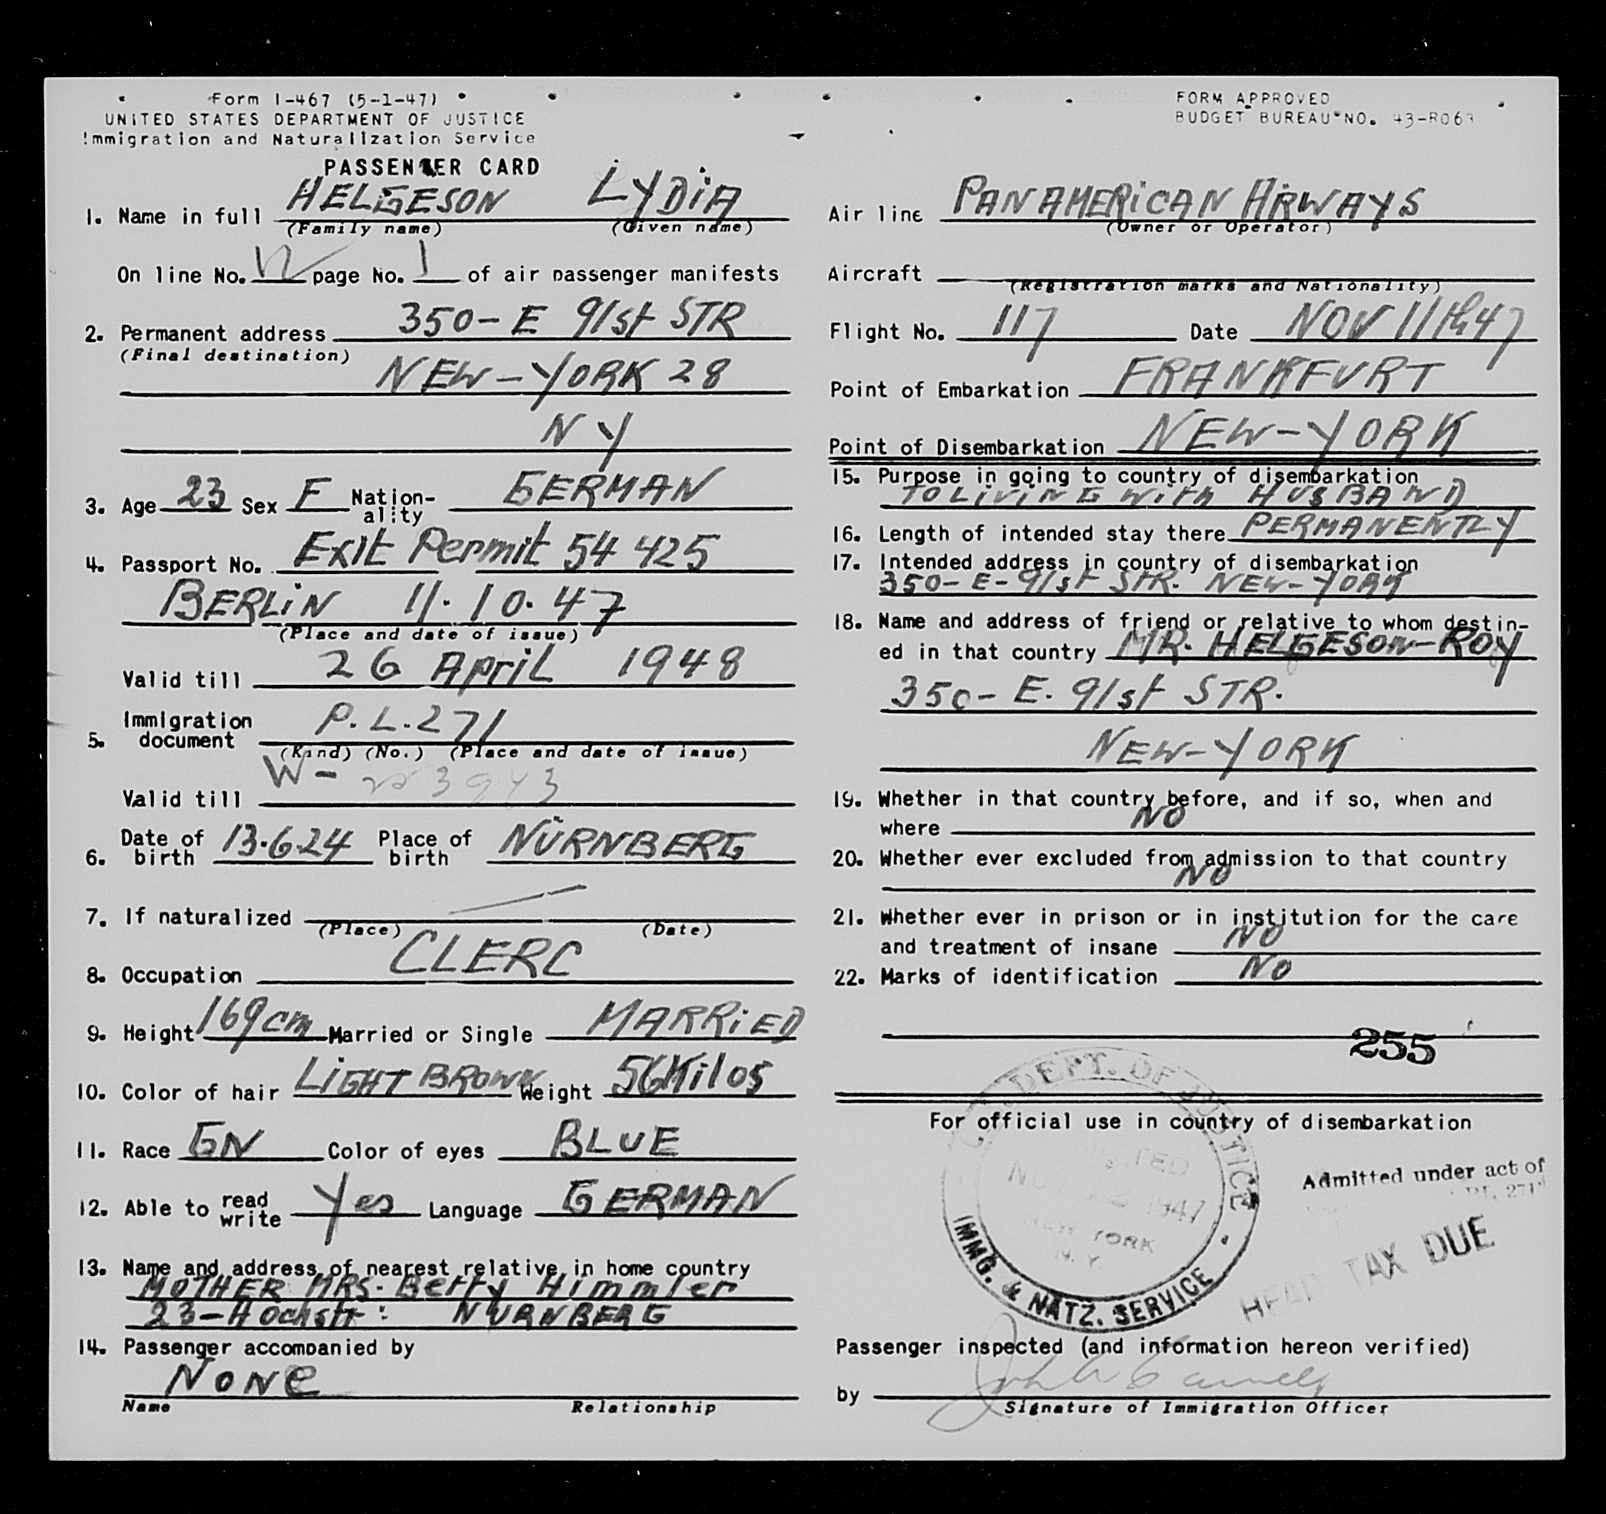 Form I-467 (5-1-47)
UNITED STATES DEPARTMENT OF JUSTICE
Immigration and Naturalization Service
PASSENGER CARD
1. Name in full HELGESON LYDIA
(Family name) (Given name)
On line No. page No. 1 of air passenger manifests
2. Permanent address 350-E 91st STR
(Final destination)
NEW-YORK 28
NY
3. Age 23 Sex F Nation-ality GERMAN
4. Passport No. Exit Permit 54 425
BERLiN 11.10.47
(Place and date of issue)
Valid till 26 April 1948
5. Immigration document P.L.271
(Kind) (No.) (Place and date of issue)
W-
Valid till
6. Date of birth 13.6.24 Place of birth NÜRNBERG
7. If naturalized
(Place) (Date)
8. Occupation CLERC
9. Height 169cm Married or Single MARRiED
10. Color of hair LiGHT BROWN Weight 56 Kilos
11. Race GN Color of eyes BLUE
12. Able to read write Yes Language GERMAN
13. Name and address of nearest relative in home country
MOTHER MRS. Betty Himmler
23-Hochstr: NURNBERG
14. Passenger accompanied by
NONe
Name Relationship
FORM APPROVED
BUDGET BUREAU NO. 43-R063
Air line PAN AMERiCAN AiRWAYS
(Owner or Operator)
Aircraft
(Registration marks and Nationality)
Flight No. 117 Date NOV 11th 47
Point of Embarkation FRANKFURT
Point of Disembarkation NEW-YORK
15. Purpose in going to country of disembarkation
TO LiViNG WiTH HUSBAND
16. Length of intended stay there PERMANENTLY
17. Intended address in country of disembarkation
350-E-91st STR. NEW-YORK
18. Name and address of friend or relative to whom destin-
ed in that country MR. HELGESON-ROY
350-E. 91st STR.
NEW-YORK
19. Whether in that country before, and if so, when and
where NO
20. Whether ever excluded from admission to that country
NO
21. Whether ever in prison or in institution for the care
and treatment of insane NO
22. Marks of identification NO
255
For official use in country of disembarkation
DEPT. OF JUSTICE
1947
NEW YORK
N.Y.
IMMG. & NATZ. SERVICE
Admitted under act of
HEAD TAX DUE
Passenger inspected (and information hereon verified)
by
Signature of Immigration Officer